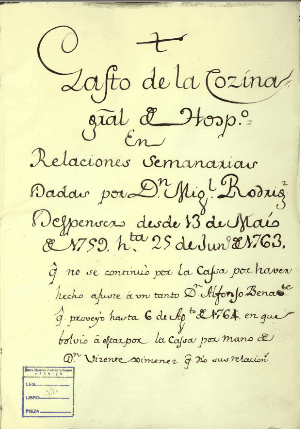 Gasto de la Cozina
gral de Hosp.o
En
Relaciones Semanarias
Dadas por Dn Migl Rodrigz
Despensero desde 13 de Maio
de 1759. hta 25 de Juno de 1763.
q no se continuó por la Cassa por haver
hecho ajuste â un tanto Dn Alfonso
q proveyo hasta 6 de Agto de 1764 en que
bolvio â estar por la Cassa por mano de
Dn Vizente Ximenez q no sus relacion
LEG.
LIBRO
PIEZA